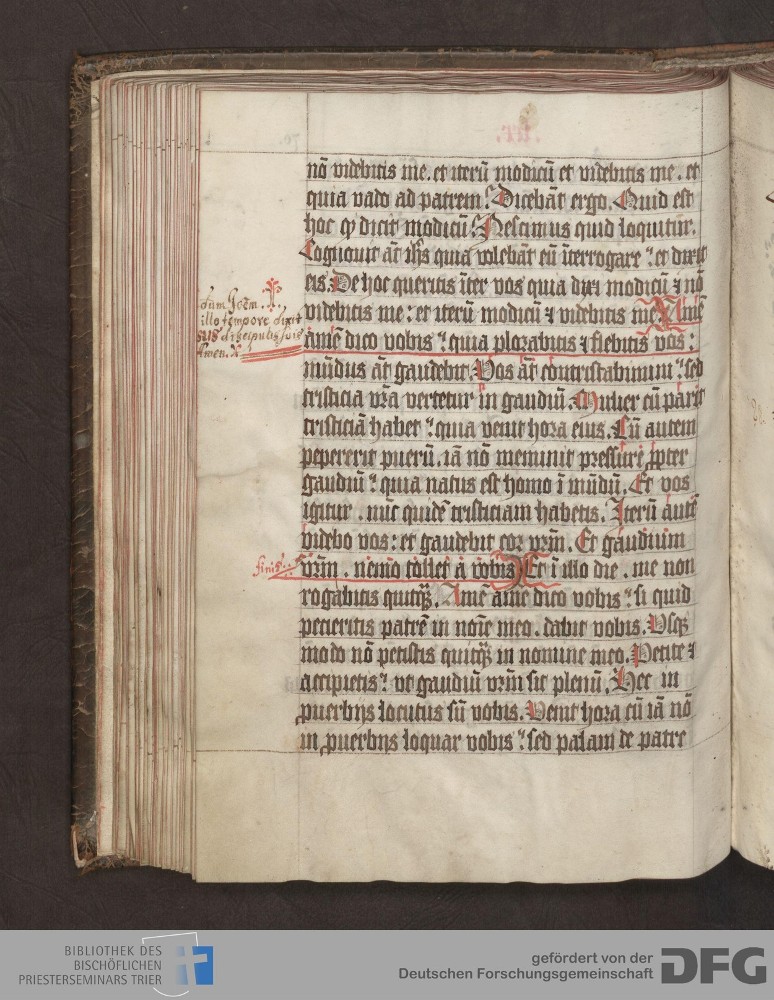 nō videbitis me. et iterū modicū et videbitis me. et
quia vado ad patrem? Dicebāt ergo. Quid est
hoc qd dicit modicū? Nescimus quid loquitur.
Cognouit āt ihs quia volebāt eū īterrogare? et dixit
eis. De hoc queritis īter vos quia dixi modicū ⁊ nō
videbitis me: et iterū modicū ⁊ videbitis me Amē
āmē dico vobis? quia plorabitis ⁊ flebitis vos:
mūdus āt gaudebit. Vos āt contristabimini? sed
tristicia vr̄a vertetur in gaudiū. Mulier cū parit
tristiciā habet? quia venit hora eius. Cū autem
pepererit puerū. iā nō meminit pressure ꝓpter
gaudiū? quia natus est homo ī mūdū. Et vos
igitur. nūc quidē tristiciam habetis. Iterū autē
videbo vos: et gaudebit cor vrm̄. Et gaudium
vrm̄. nemo tollet a vobis Et ī illo die. me non
rogabitis quitqȝ. Amē amē dico vobis? si quid
pecieritis patrē in noīe meo. dabit vobis. Vsqȝ
modo nō petistis quitqȝ in nomine meo. Petite ⁊
accipietis? vt gaudiū vrm̄ sit plenū. Hec in
ꝓuerbijs locutus sū vobis. Venit hora cū iā nō
in ꝓuerbijs loquar vobis? sed palam de patre
illo tempore dixit
sus discipulis suis
Amen.
finis.
BIBLIOTHEK DES
BISCHÖFLICHEN
PRIESTERSEMINARS TRIER
gefördert von der
Deutschen Forschungsgemeinschaft
DFG